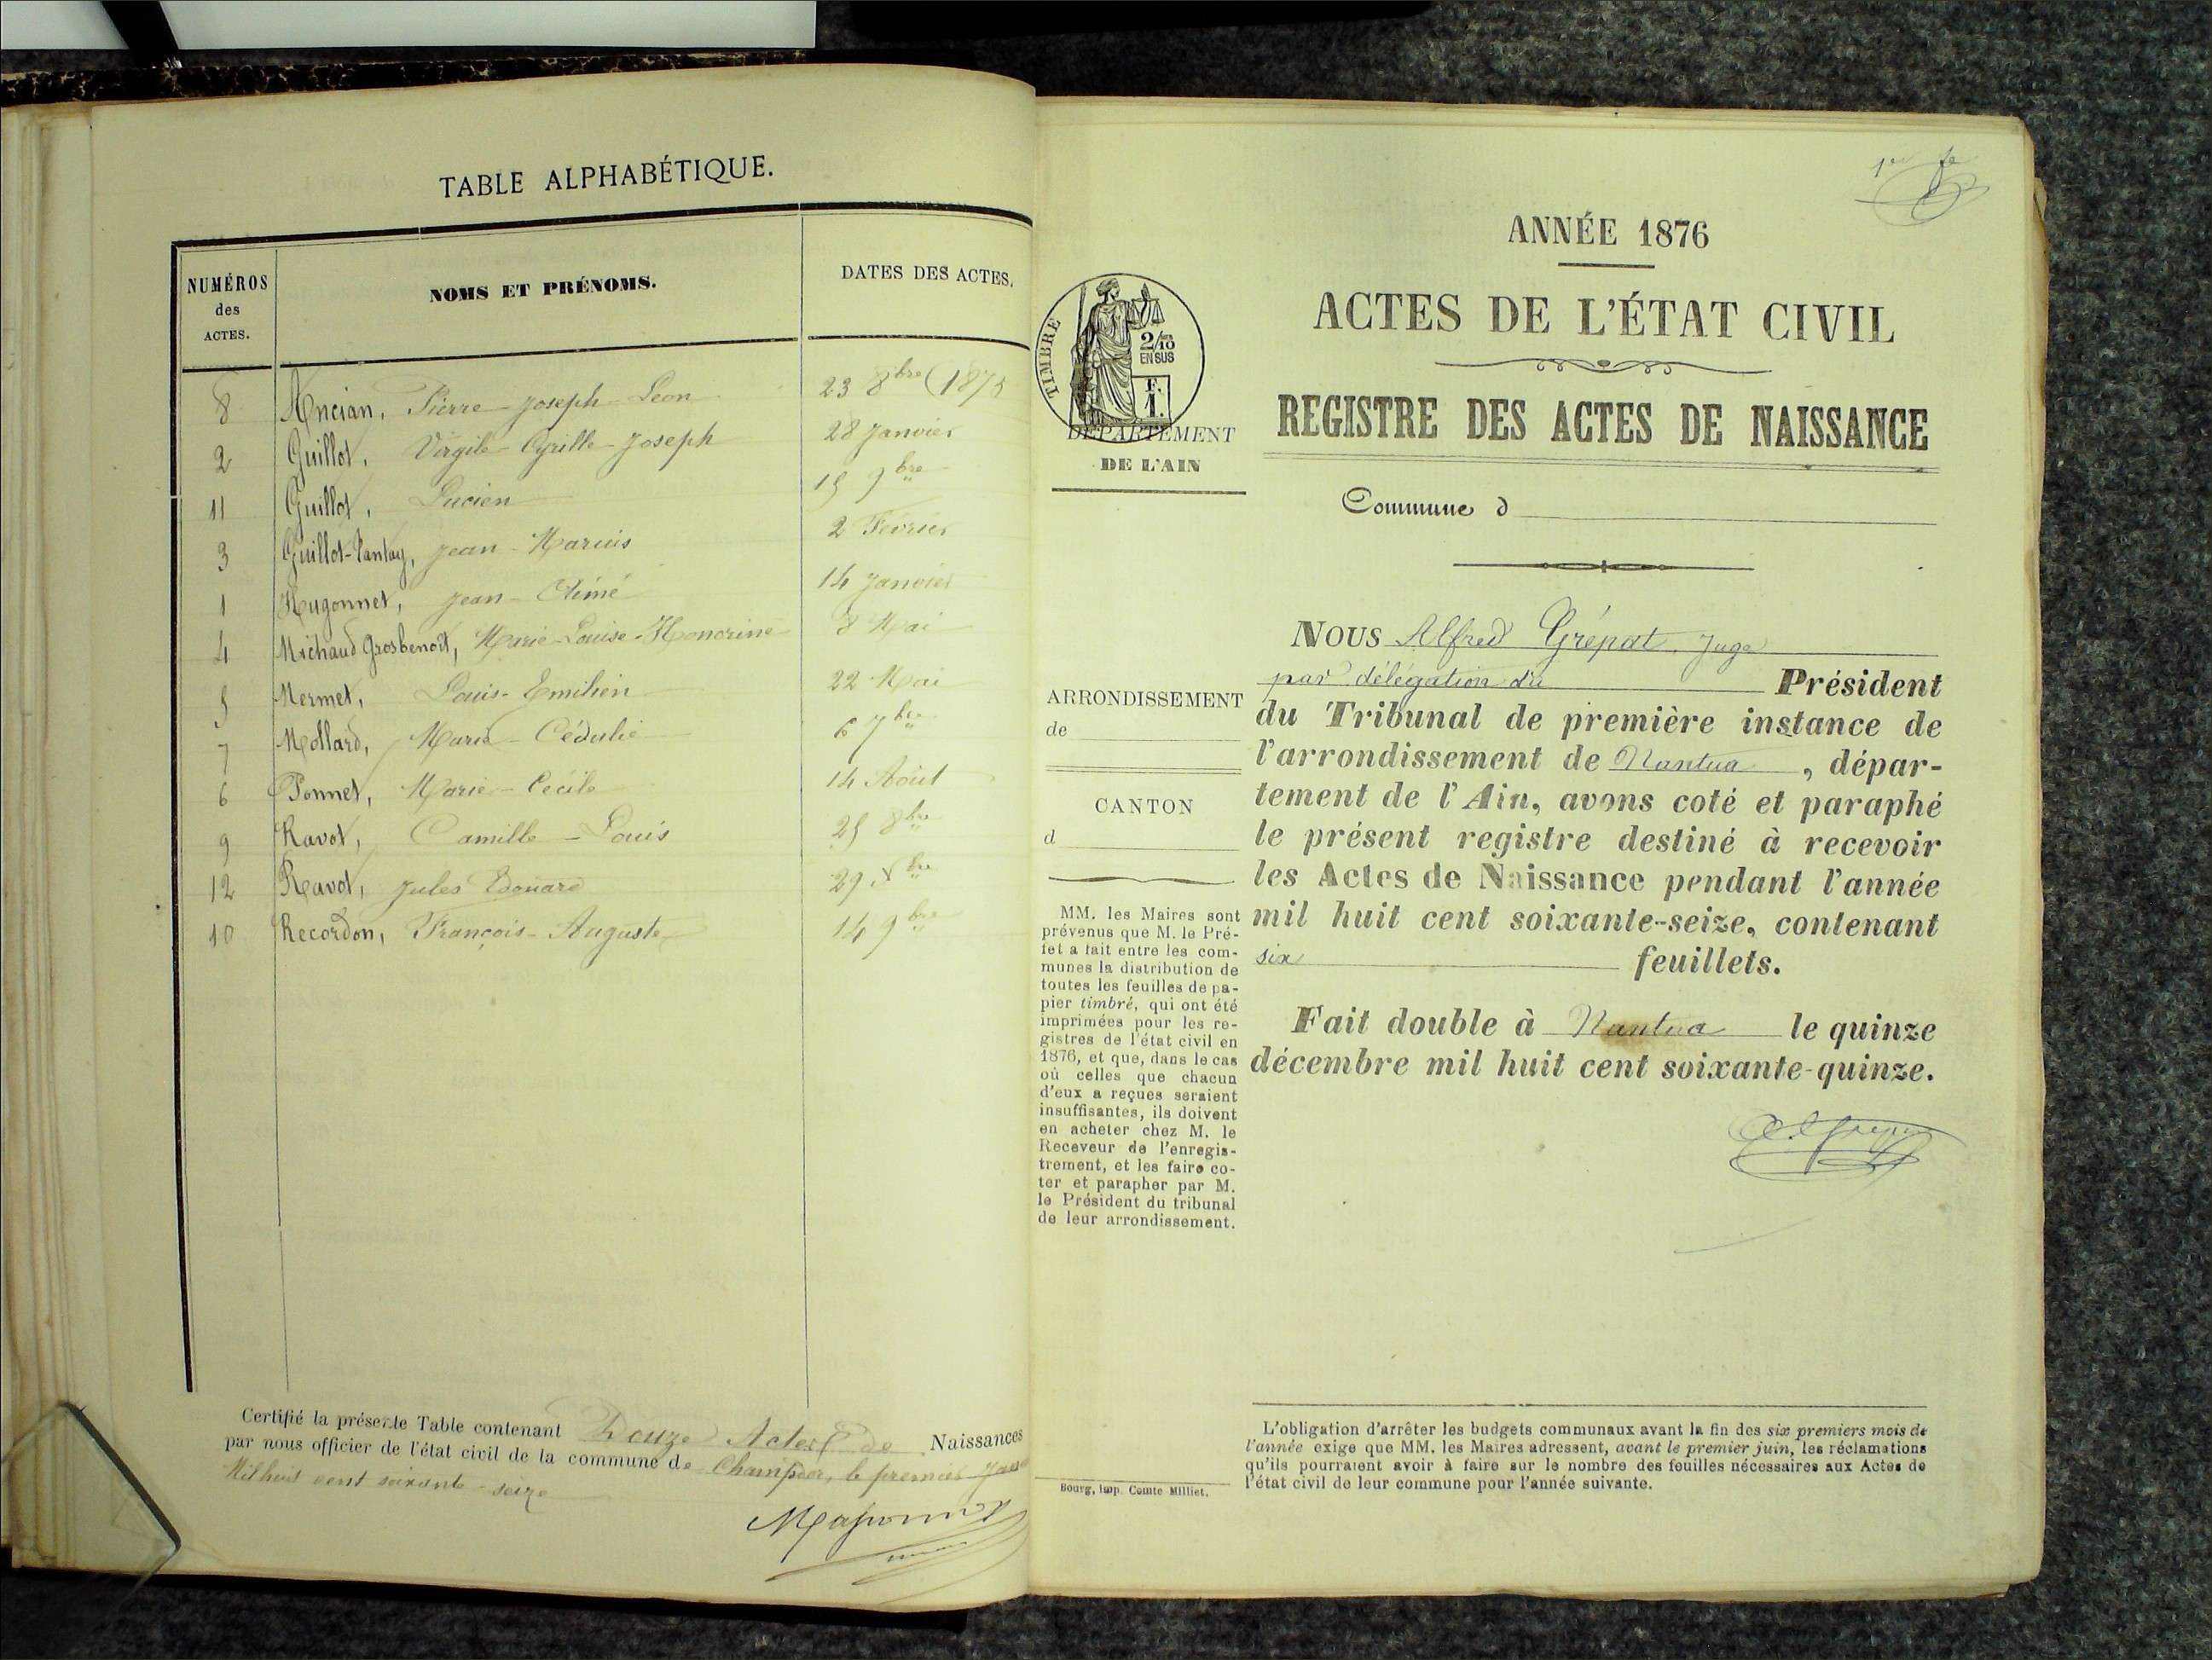 TABLE ALPHABÉTIQUE.
NUMÉROS des ACTES. NOMS ET PRÉNOMS. DATES DES ACTES.
8 Ancian, Pierre-Joseph-Léon 23 8bre (1875
2 Guillot, Virgile-Cyrille-Joseph 28 Janvier
11 Guillot, Lucien 15 9bre
3 Guillot-Pantay, Jean-Marius 2 Février
1 Hugonnet, Jean-Aimé 14 Janvier
4 Michaud Grosbenoit, Marie-Louise-Honorine 8 Mai
5 Mermet, Louis-Emilien 22 Mai
7 Mollard, Marie-Cédulie 6 7bre
6 Ponnet, Marie-Cécile 14 Août
9 Ravot, Camille-Louis 25 8bre
12 Ravot, Jules Edouard 29 Xbre
10 Recordon, François-Auguste 14 9bre
Certifié la présente Table contenant Douze Actes de Naissances
par nous officier de l'état civil de la commune de Champdor, le premier Janv
Mil huit cent soixante-seize
1er
ANNÉE 1876
ACTES DE L'ÉTAT CIVIL
REGISTRE DES ACTES DE NAISSANCE
TIMBRE
2/10 EN SUS
F. 1.
DÉPARTEMENT
DE L'AIN
Commune d
ARRONDISSEMENT
de
CANTON
d
MM. les Maires sont
prévenus que M. le Pré-
fet a fait entre les com-
munes la distribution de
toutes les feuilles de pa-
pier timbré, qui ont été
imprimées pour les re-
gistres de l'état civil en
1876, et que, dans le cas
où celles que chacun
d'eux a reçues seraient
insuffisantes, ils doivent
en acheter chez M. le
Receveur de l'enregis-
trement, et les faire co-
ter et parapher par M.
le Président du tribunal
de leur arrondissement.
Bourg, imp. Comte Milliet.
NOUS Alfred Grépat, Juge
par délégation du Président
du Tribunal de première instance de
l'arrondissement de Nantua, dépar-
tement de l'Ain, avons coté et paraphé
le présent registre destiné à recevoir
les Actes de Naissance pendant l'année
mil huit cent soixante-seize, contenant
six feuillets.
Fait double à Nantua le quinze
décembre mil huit cent soixante-quinze.
L'obligation d'arrêter les budgets communaux avant la fin des six premiers mois de
l'année exige que MM. les Maires adressent, avant le premier juin, les réclamations
qu'ils pourraient avoir à faire sur le nombre des feuilles nécessaires aux Actes de
l'état civil de leur commune pour l'année suivante.